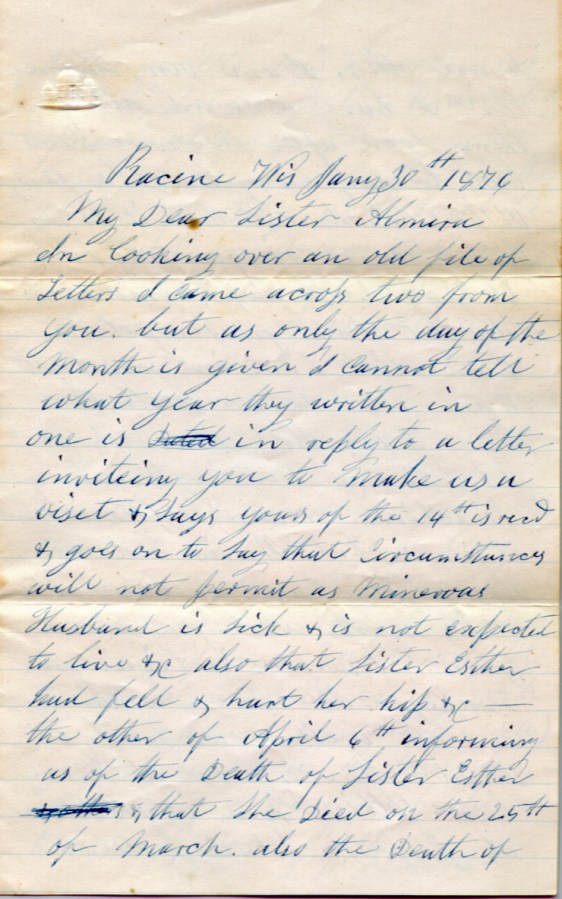 Racine Wis Jany 30th 1876
My Dear Sister Almira
In looking over an old file of
Letters I came across two from
you. but as only the day of the
Month is given I cannot tell
what year they written in
one is Dated in reply to a letter
inviteing you to Make us a
viset & Says yours of the 14th is recd
& goes on to Say that Circumstances
will not permit as Minervas
Husband is Sick & is not expected
to live &c also that Sister Esther
had fell & hurt her hip &c —
the other of April 6th informing
us of the Death of Sister Esther
& that She Died on the 25th
of March. also the Death of